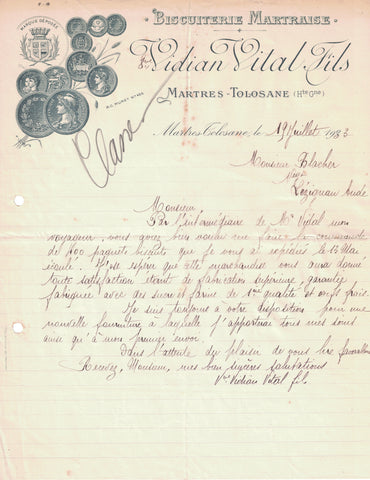 BISCUITERIE MARTRAISE
MARQUE DÉPOSÉE
Vve Vidian Vital Fils
MARTRES-TOLOSANE (Hte Gne)
Classé
Martres-Tolosane, le 19 Juillet 1933
Monsieur Blacher
Négt
Lézignan Aude
Monsieur
Par l'intermédiaire de Mr Vidal mon
voyageur, vous avez bien voulu me faire la commande
de 400 paquets biscuits que je vous ai expédiés le 13 Mai
écoulé. J'ose espérer que cette marchandise vous aura donné
toute satisfaction étant de fabrication supérieure, garantie
fabriquée avec du sucre et farine de 1ère qualité et œufs frais.
Je suis toujours à votre disposition pour une
nouvelle fourniture à laquelle j'apporterai tous mes soins
ainsi qu'à mon premier envoi.
Dans l'attente du plaisir de vous lire favorablement
Recevez, Monsieur, mes bien sincères salutations
Vve Vidian Vital fils